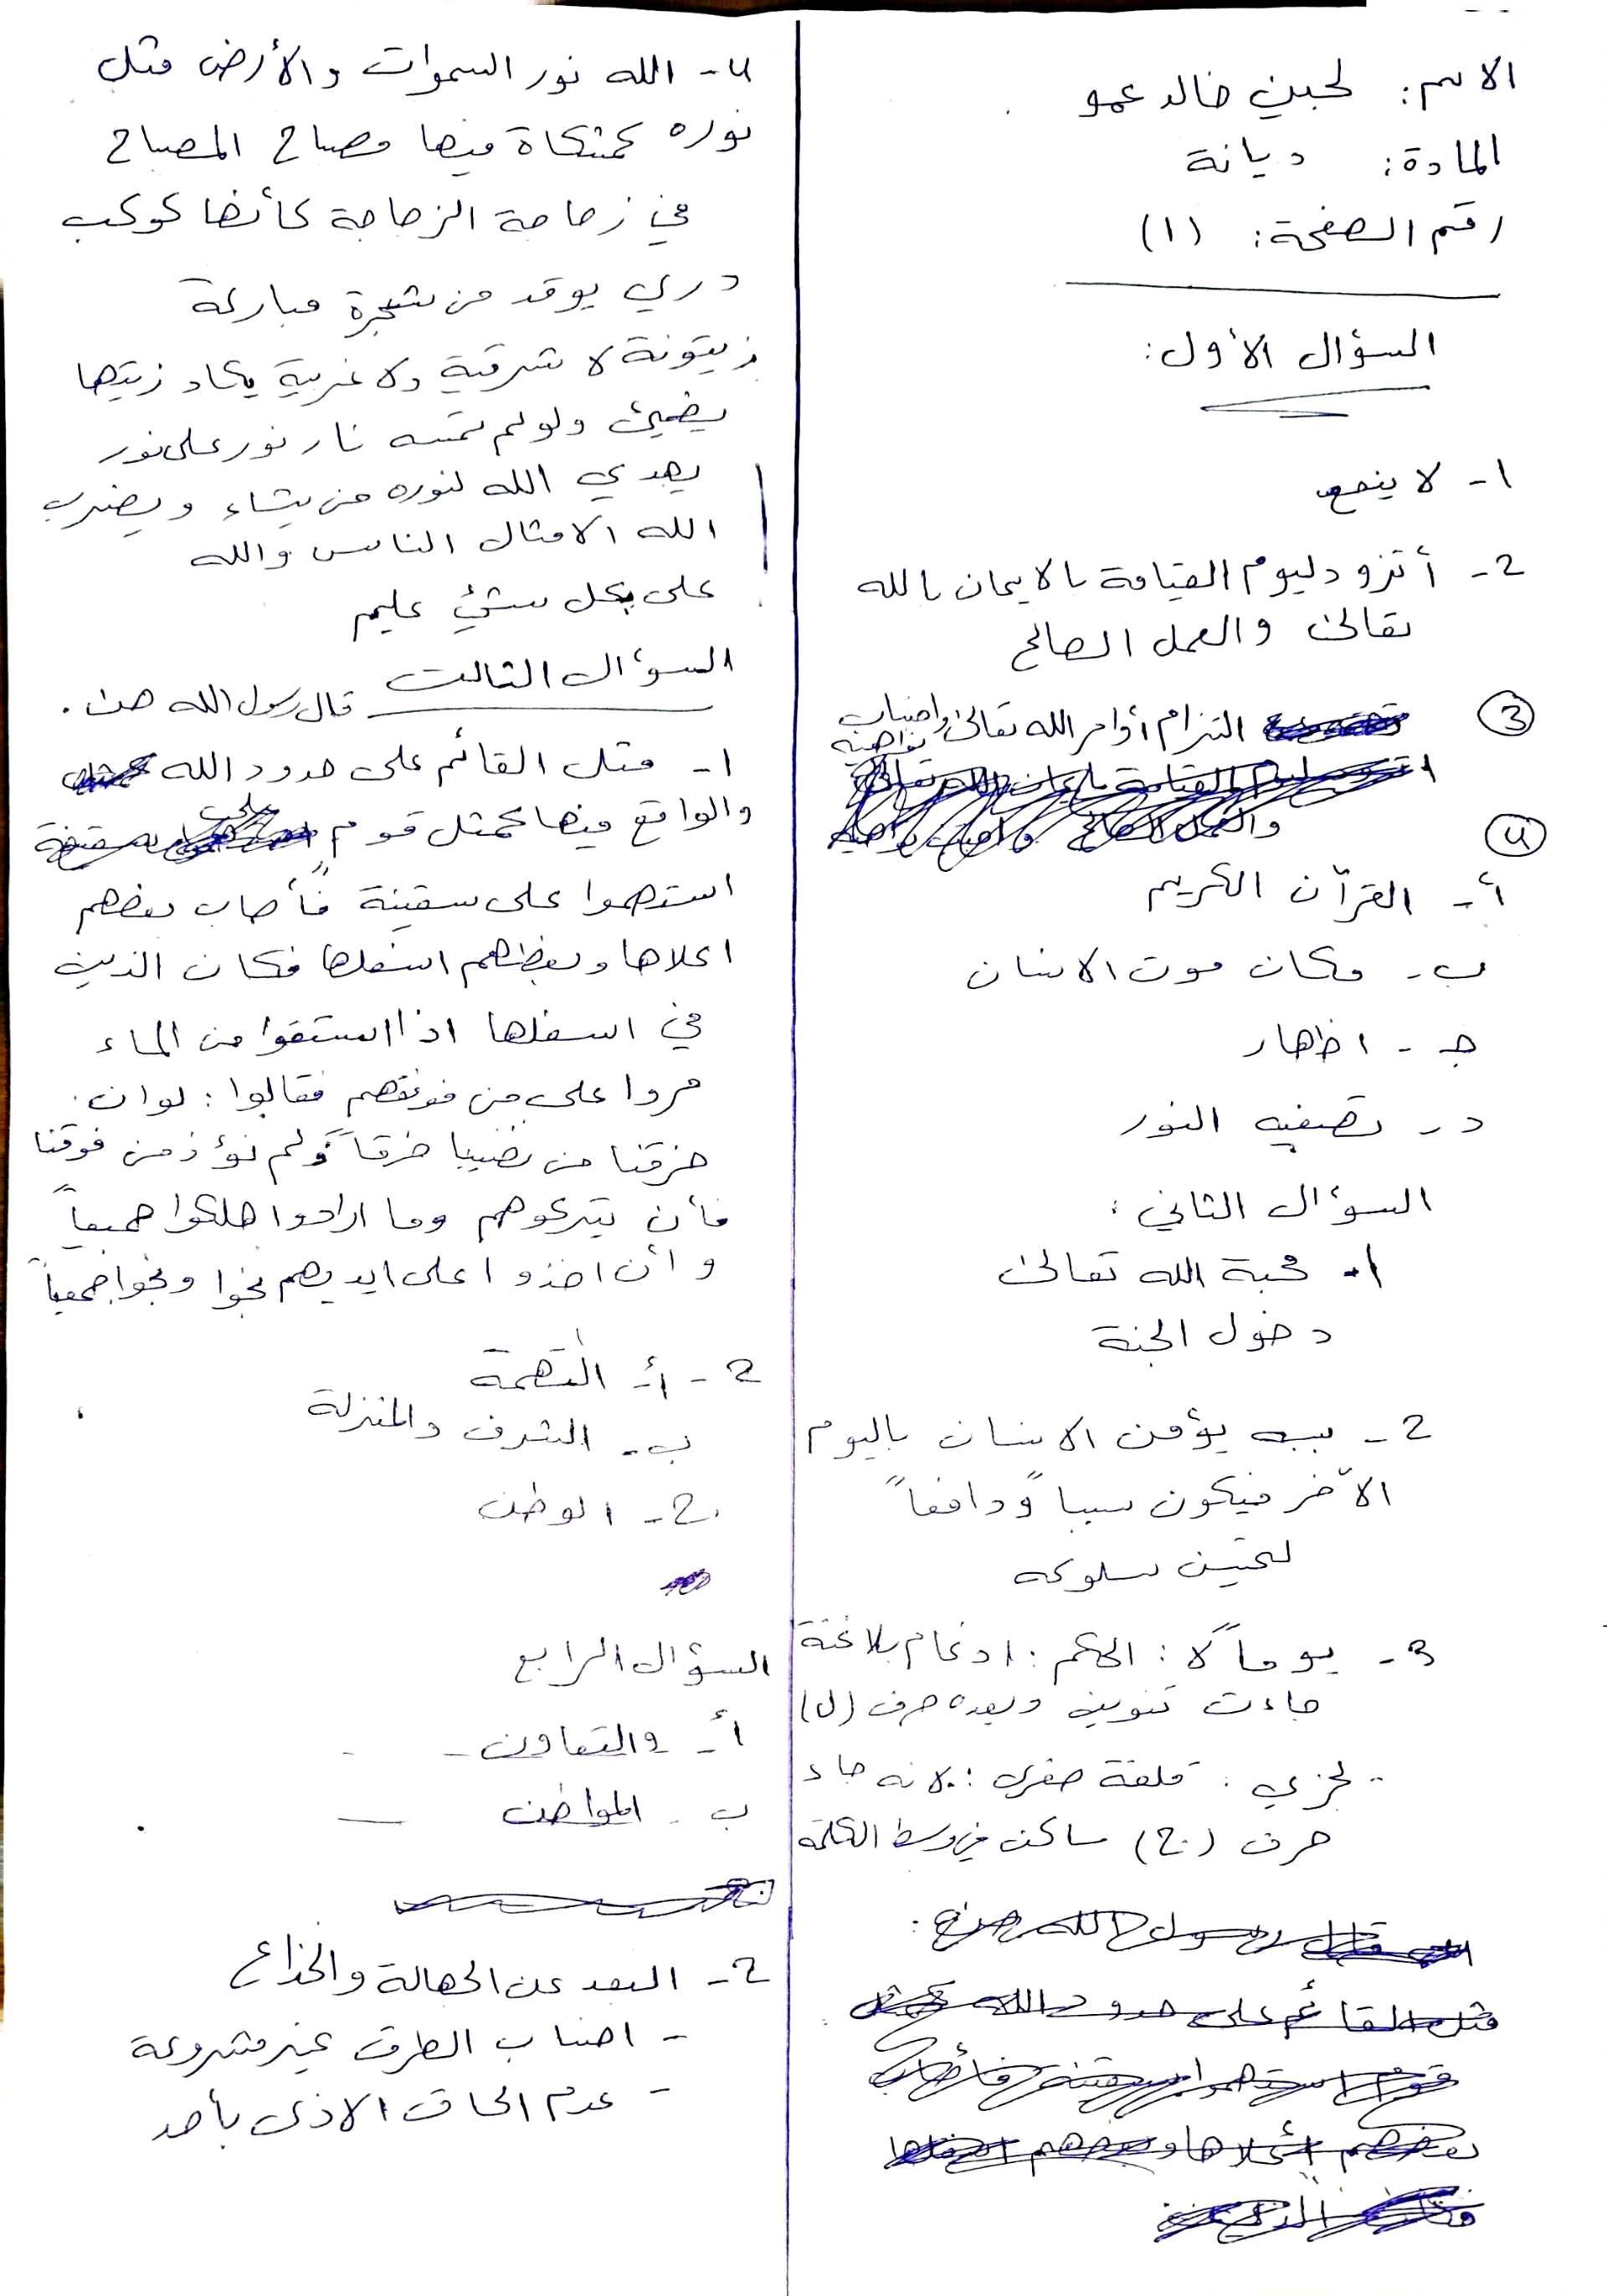 الاسم: لجين خالد عمو
المادة: ديانة
رقم الصفحة: (١)
السؤال الأول:
١- لا ينفع
2- أتزود ليوم القيامة بالايمان بالله
تعالى والعمل الصالح
3 التزام أوامر الله تعالى واجتناب
نواهيه
4
أ- القرآن الكريم
ب- مكان موت الانسان
جـ - اظهار
د- تصفيه النور
السؤال الثاني:
١- محبة الله تعالى
دخول الجنة
2- يؤمن الانسان باليوم
الآخر فيكون سبباً ودافعاً
لتحسين سلوكه
3- يوماً لا: الحكم: ادغام بلا غنة
جاءت تنوين وبعده حرف (ل)
- تجزي: قلقة صغرى: لانه جاء
حرف (ج) ساكن في وسط الكلمة
قال رسول الله
مثل القائم على حدود الله كمثل
قوم استهموا سفينة فأصاب
بعضهم أعلاها وبعضهم اسفلها
4- الله نور السموات والأرض مثل
نوره كمشكاة فيها مصباح المصباح
في زجاجة الزجاجة كأنها كوكب
دري يوقد من شجرة مباركة
زيتونة لا شرقية ولا غربية يكاد زيتها
يضيئ ولو لم تمسه نار نور على نور
يهدي الله لنوره من يشاء ويضرب
الله الامثال الناس والله
على بكل شئ عليم
السؤال الثالث قال رسول الله
١- مثل القائم على حدود الله
والواقع فيها كمثل قوم
استهموا على سفينة فأصاب بعضهم
اعلاها وبعظهم اسفلها فكان الذين
في اسفلها اذا استقوا من الماء
مروا على من فوقهم فقالوا: لو ان
خرقنا من نصيبنا خرقاً ولم نؤذ من فوقنا
فأن يتركوهم وما ارادوا هلكوا جميعاً
وأن اخذوا على ايديهم نجوا ونجوا جميعاً
2- أ- التهمة
ب- الشرف والمنزلة
2- الوطن
السؤال الرابع
أ- والتعاون
ب- المواطن
2- البعد عن الجهالة والخداع
- اجتناب الطرق غير مشروعة
- عدم الحاق الاذى بأحد